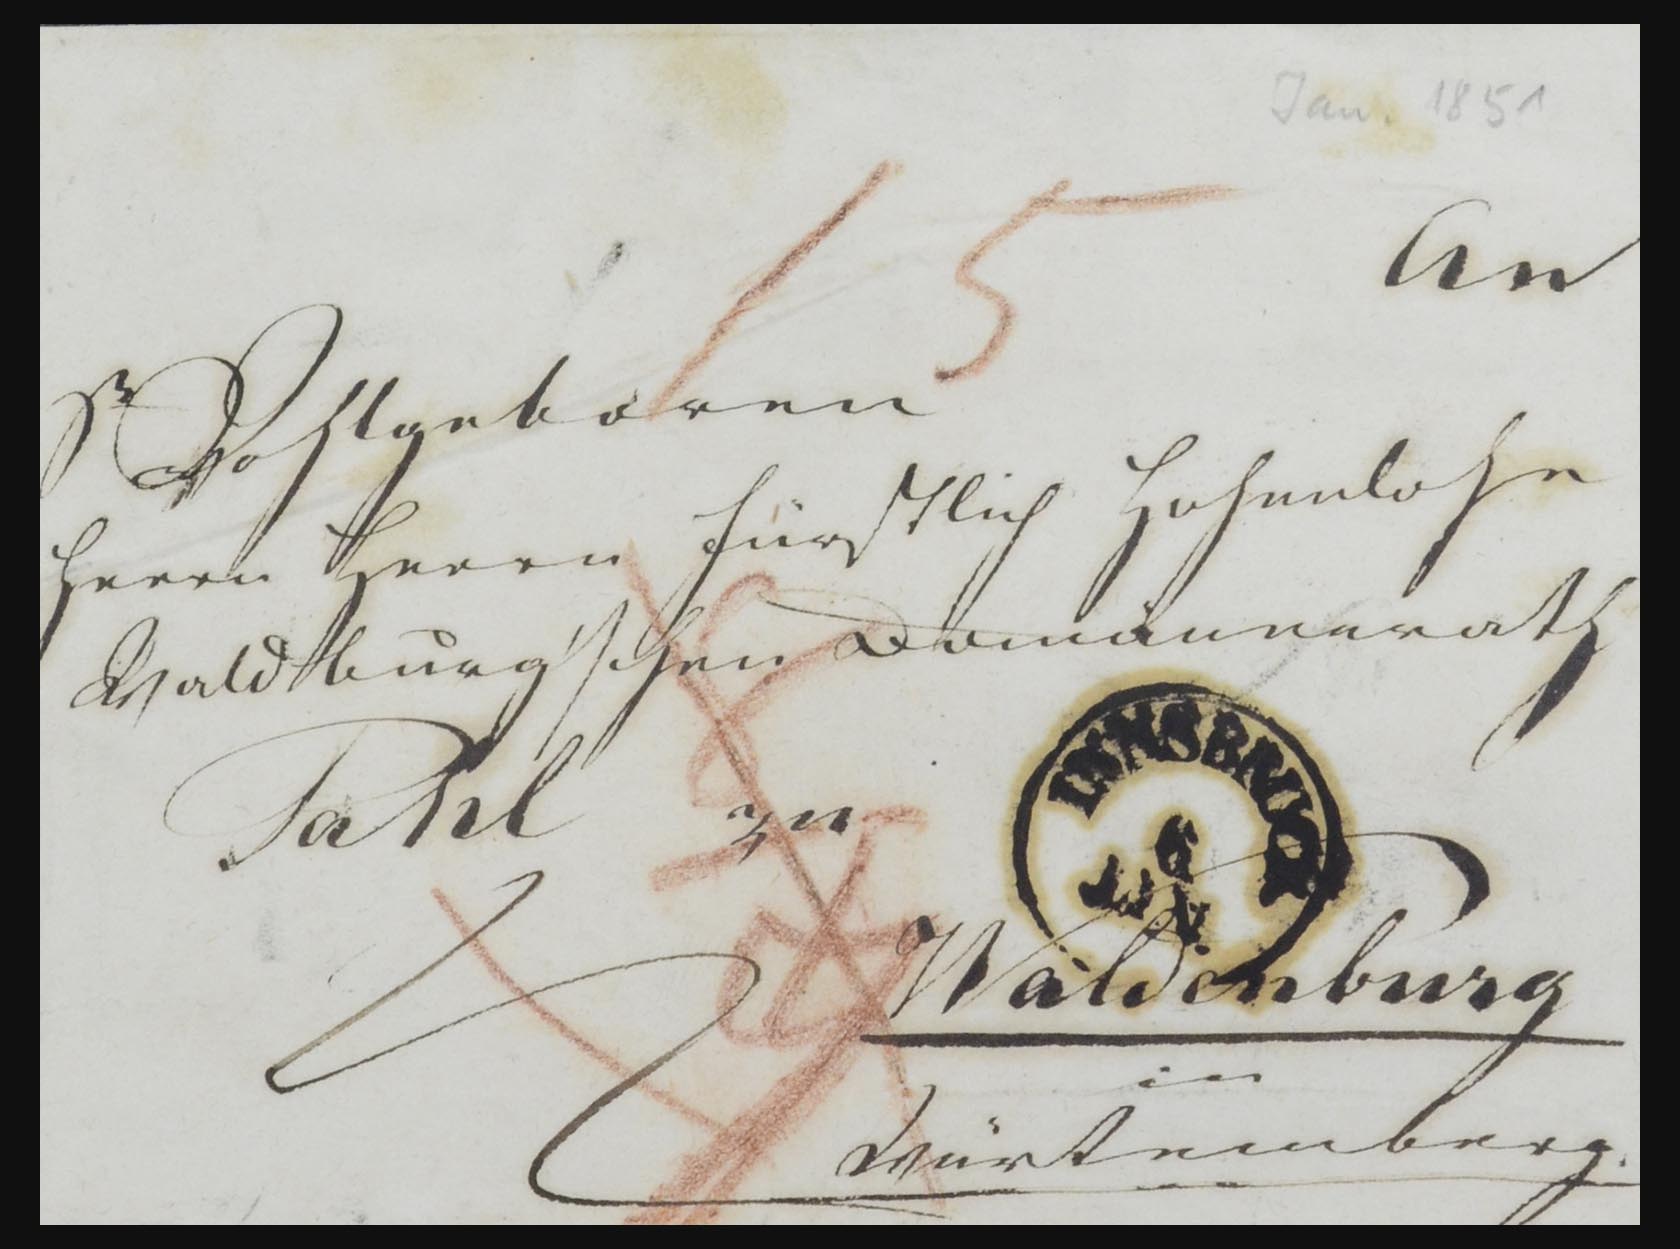 Jan. 1851
15
An
Sr Wohlgeboren
Herrn Herrn fürstlich Hohenlohe
Waldburg'schen Domänenrath
Pahl zu
INNSBRUCK
6
JAN.
Waldenburg
in
Würtemberg.